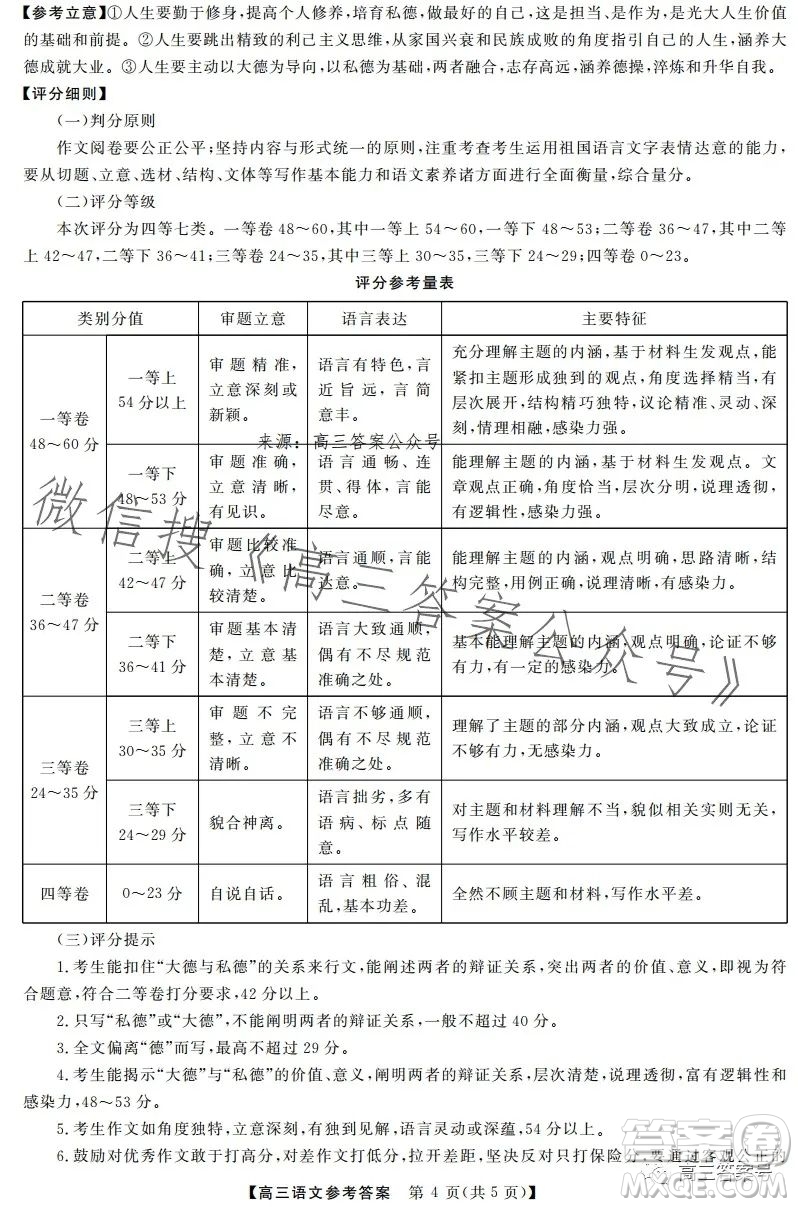 【参考立意】①人生要勤于修身,提高个人修养,培育私德,做最好的自己,这是担当、是作为,是光大人生价值
的基础和前提。②人生要跳出精致的利己主义思维,从家国兴衰和民族成败的角度指引自己的人生,涵养大
德成就大业。③人生要主动以大德为导向,以私德为基础,两者融合,志存高远,涵养德操,淬炼和升华自我。
【评分细则】
(一)判分原则
作文阅卷要公正公平;坚持内容与形式统一的原则,注重考查考生运用祖国语言文字表情达意的能力,
要从切题、立意、选材、结构、文体等写作基本能力和语文素养诸方面进行全面衡量,综合量分。
(二)评分等级
本次评分为四等七类。一等卷 48～60,其中一等上 54～60,一等下 48～53;二等卷 36～47,其中二等
上 42～47,二等下 36～41;三等卷 24～35,其中三等上 30～35,三等下 24～29;四等卷 0～23。
评分参考量表
类别分值 审题立意 语言表达 主要特征
一等卷
48～60 分
一等上
54 分以上
审题精准,
立意深刻或
新颖。
语言有特色,言
近旨远,言简
意丰。
充分理解主题的内涵,基于材料生发观点,能
紧扣主题形成独到的观点,角度选择精当,有
层次展开,结构精巧独特,议论精辟、灵动、深
刻,情理相融,感染力强。
来源：高三答案公众号
一等下
48～53 分
审题准确,
立意清晰,
有见识。
语言通畅、连
贯、得体,言能
尽意。
能理解主题的内涵,基于材料生发观点。文
章观点正确,角度恰当,层次分明,说理透彻,
有逻辑性,感染力强。
二等卷
36～47 分
二等上
42～47 分
审题比较准
确,立意比
较清楚。
语言通顺,言能
达意。
能理解主题的内涵,观点明确,思路清晰,结
构完整,用例正确,说理清晰,有感染力。
二等下
36～41 分
审题基本清
楚,立意基
本清楚。
语言大致通顺,
偶有不尽规范
准确之处。
基本能理解主题的内涵,观点明确,论证不够
有力,有一定的感染力。
三等卷
24～35 分
三等上
30～35 分
审题不完
整,立意不
清晰。
语言不够通顺,
偶有不尽规范
准确之处。
理解了主题的部分内涵,观点大致成立,论证
不够有力,无感染力。
三等下
24～29 分
貌合神离。
语言拙劣,多有
语病、标点随
意。
对主题和材料理解不当,貌似相关实则无关,
写作水平较差。
四等卷
0～23 分
自说自话。
语言粗俗、混
乱,基本功差。
全然不顾主题和材料,写作水平差。
微信搜《高三答案公众号》
(三)评分提示
1.考生能扣住“大德与私德”的关系来行文,能阐述两者的辩证关系,突出两者的价值、意义,即视为符
合题意,符合二等卷打分要求,42 分以上。
2.只写“私德”或“大德”,不能阐明两者的辩证关系,一般不超过 40 分。
3.全文偏离“德”而写,最高不超过 29 分。
4.考生能揭示“大德”与“私德”的价值、意义,阐明两者的辩证关系,层次清晰,说理透彻,富有逻辑性和
感染力,48～53 分。
5.考生作文如角度独特,立意深刻,有独到见解,语言灵动或深蕴,54 分以上。
6.鼓励对优秀作文敢于打高分,切实纠正只打保险分,要通过客观公正的
答案圈
高三答案号
【高三语文参考答案 第 4 页(共 5 页)】